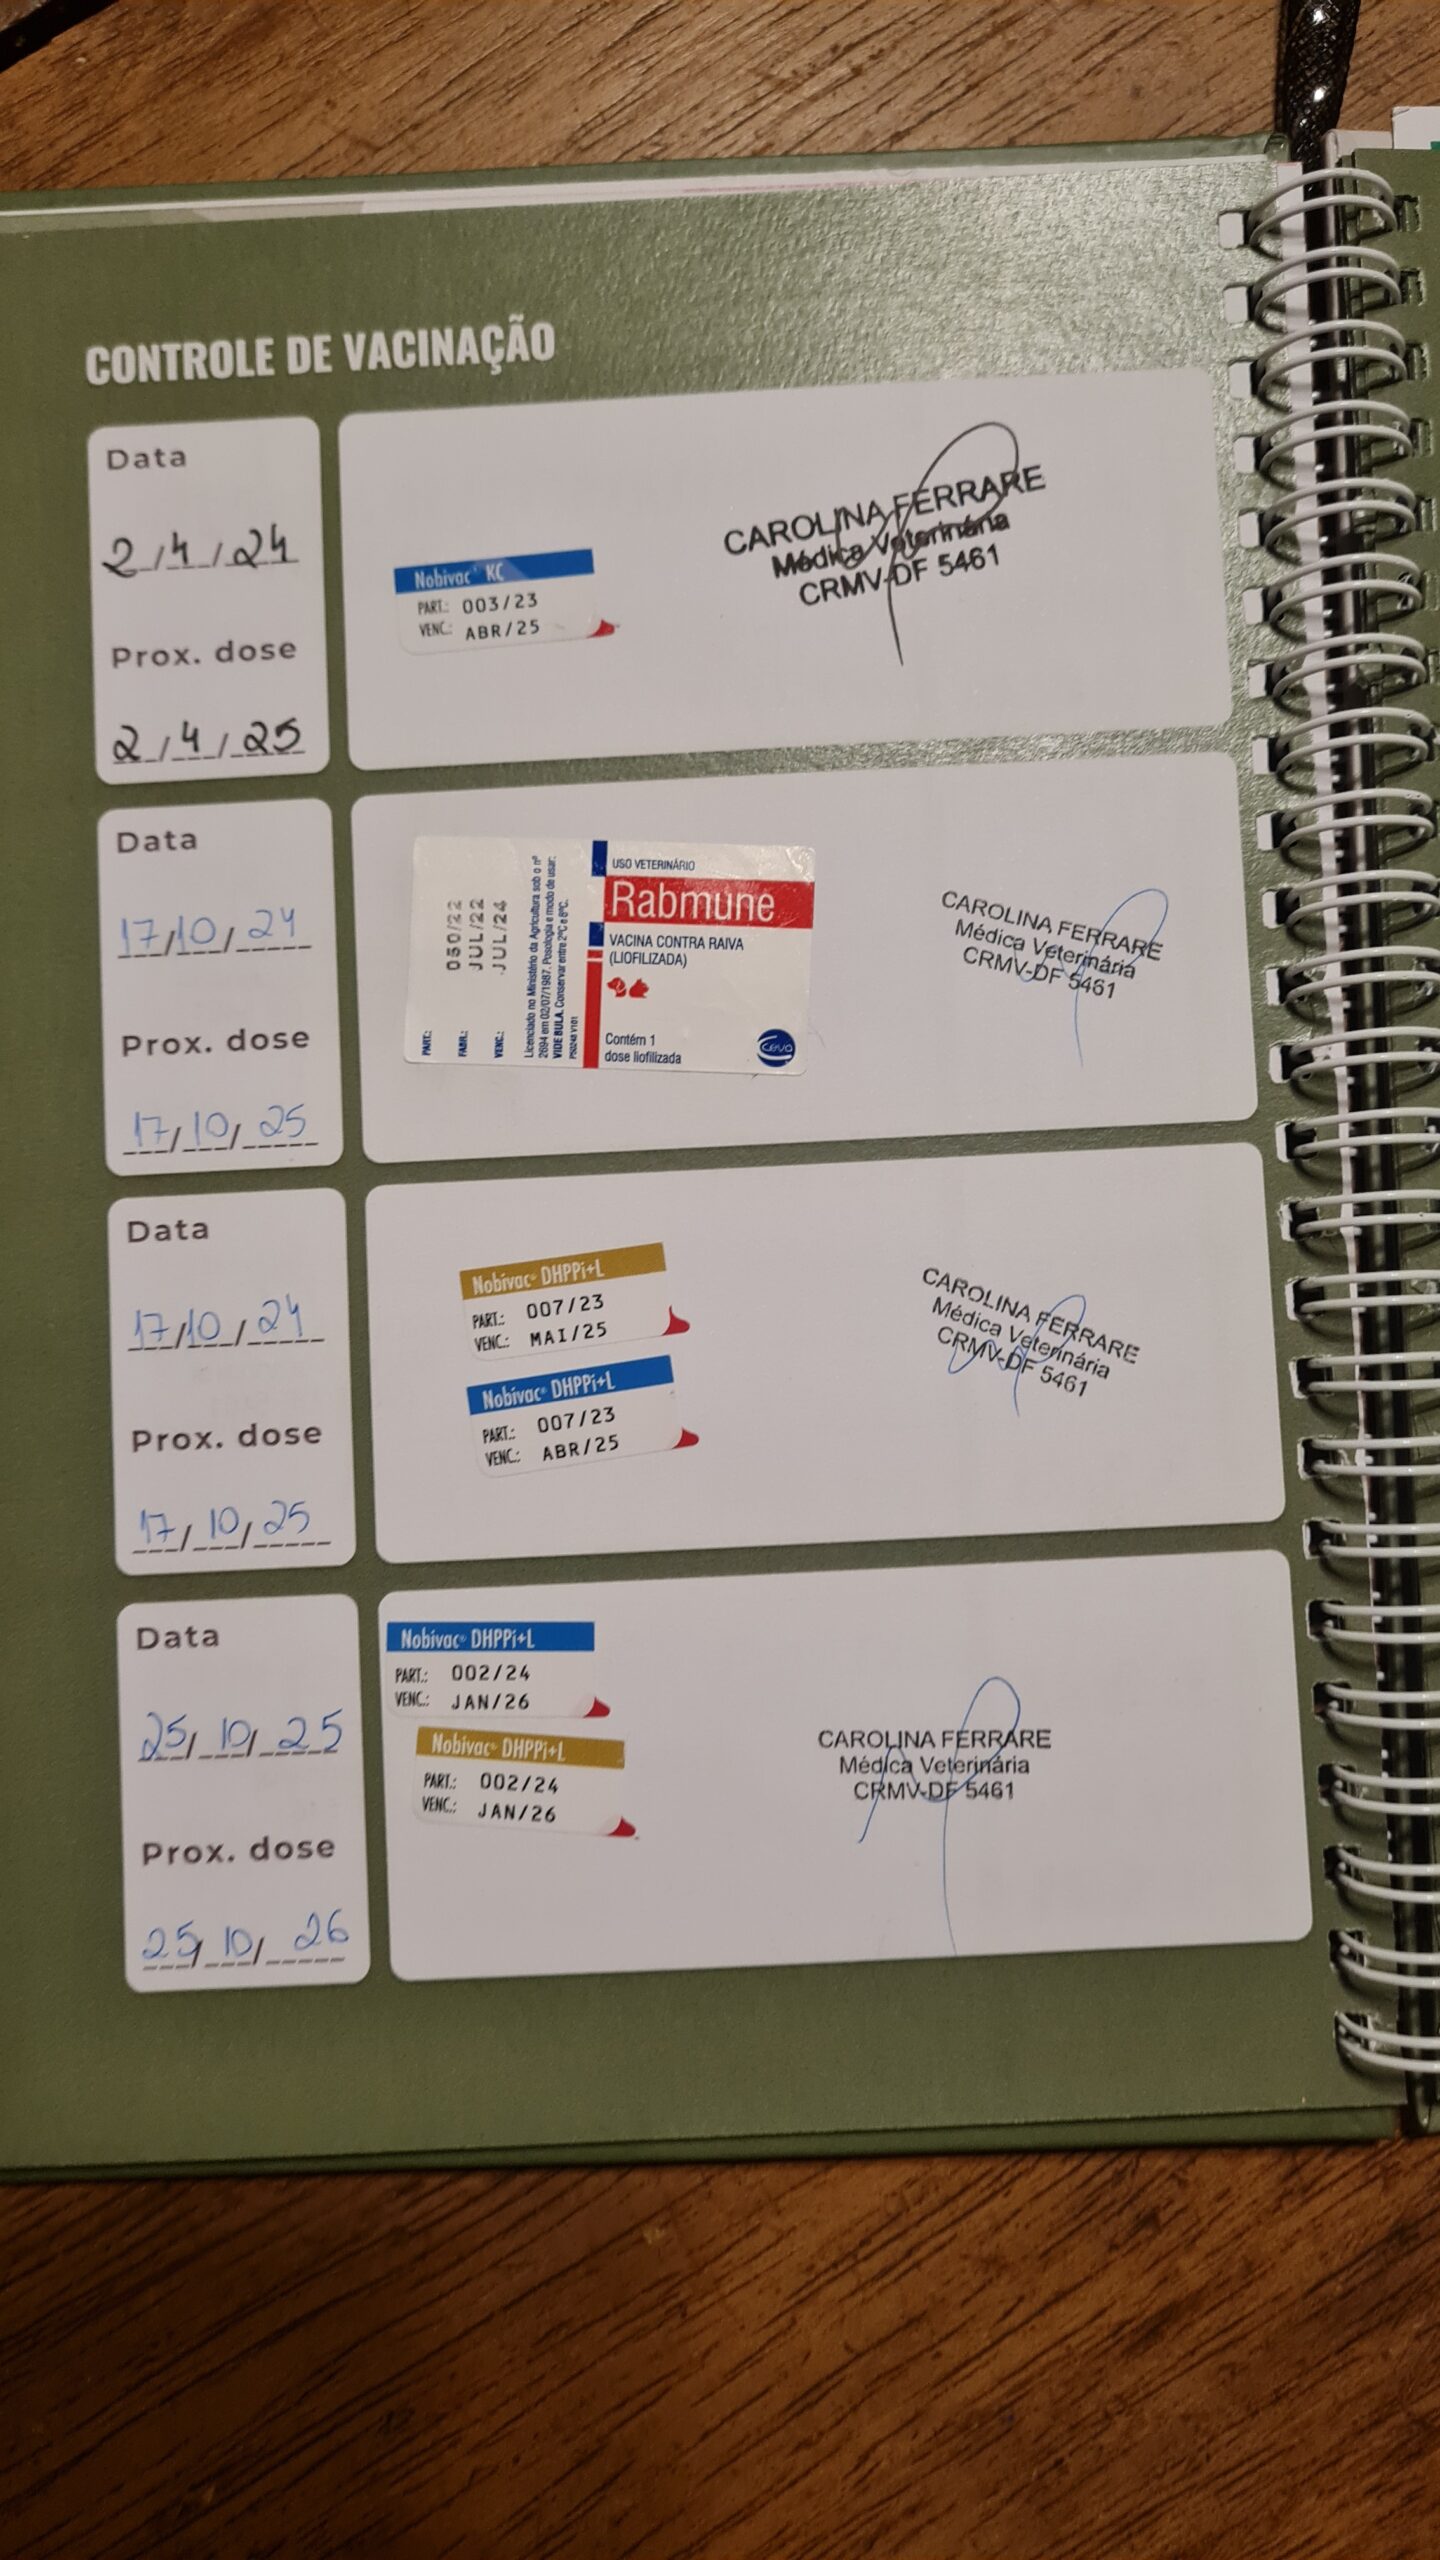 CONTROLE DE VACINAÇÃO
Data
2/4/24
Prox. dose
2/4/25
Nobivac® KC
PART.: 003/23
VENC.: ABR/25
CAROLINA FERRARE
Médica Veterinária
CRMV-DF 5461
Data
17/10/24
Prox. dose
17/10/25
PART.: 050/22
FABR.: JUL/22
VENC.: JUL/24
Licenciado no Ministério da Agricultura sob o nº
2694 em 02/07/1987. Posologia e modo de usar:
VIDE BULA. Conservar entre 2ºC e 8ºC.
USO VETERINÁRIO
Rabmune
VACINA CONTRA RAIVA
(LIOFILIZADA)
Contém 1
dose liofilizada
Ceva
CAROLINA FERRARE
Médica Veterinária
CRMV-DF 5461
Data
17/10/24
Prox. dose
17/10/25
Nobivac® DHPPi+L
PART.: 007/23
VENC.: MAI/25
Nobivac® DHPPi+L
PART.: 007/23
VENC.: ABR/25
CAROLINA FERRARE
Médica Veterinária
CRMV-DF 5461
Data
25/10/25
Prox. dose
25/10/26
Nobivac® DHPPi+L
PART.: 002/24
VENC.: JAN/26
Nobivac® DHPPi+L
PART.: 002/24
VENC.: JAN/26
CAROLINA FERRARE
Médica Veterinária
CRMV-DF 5461